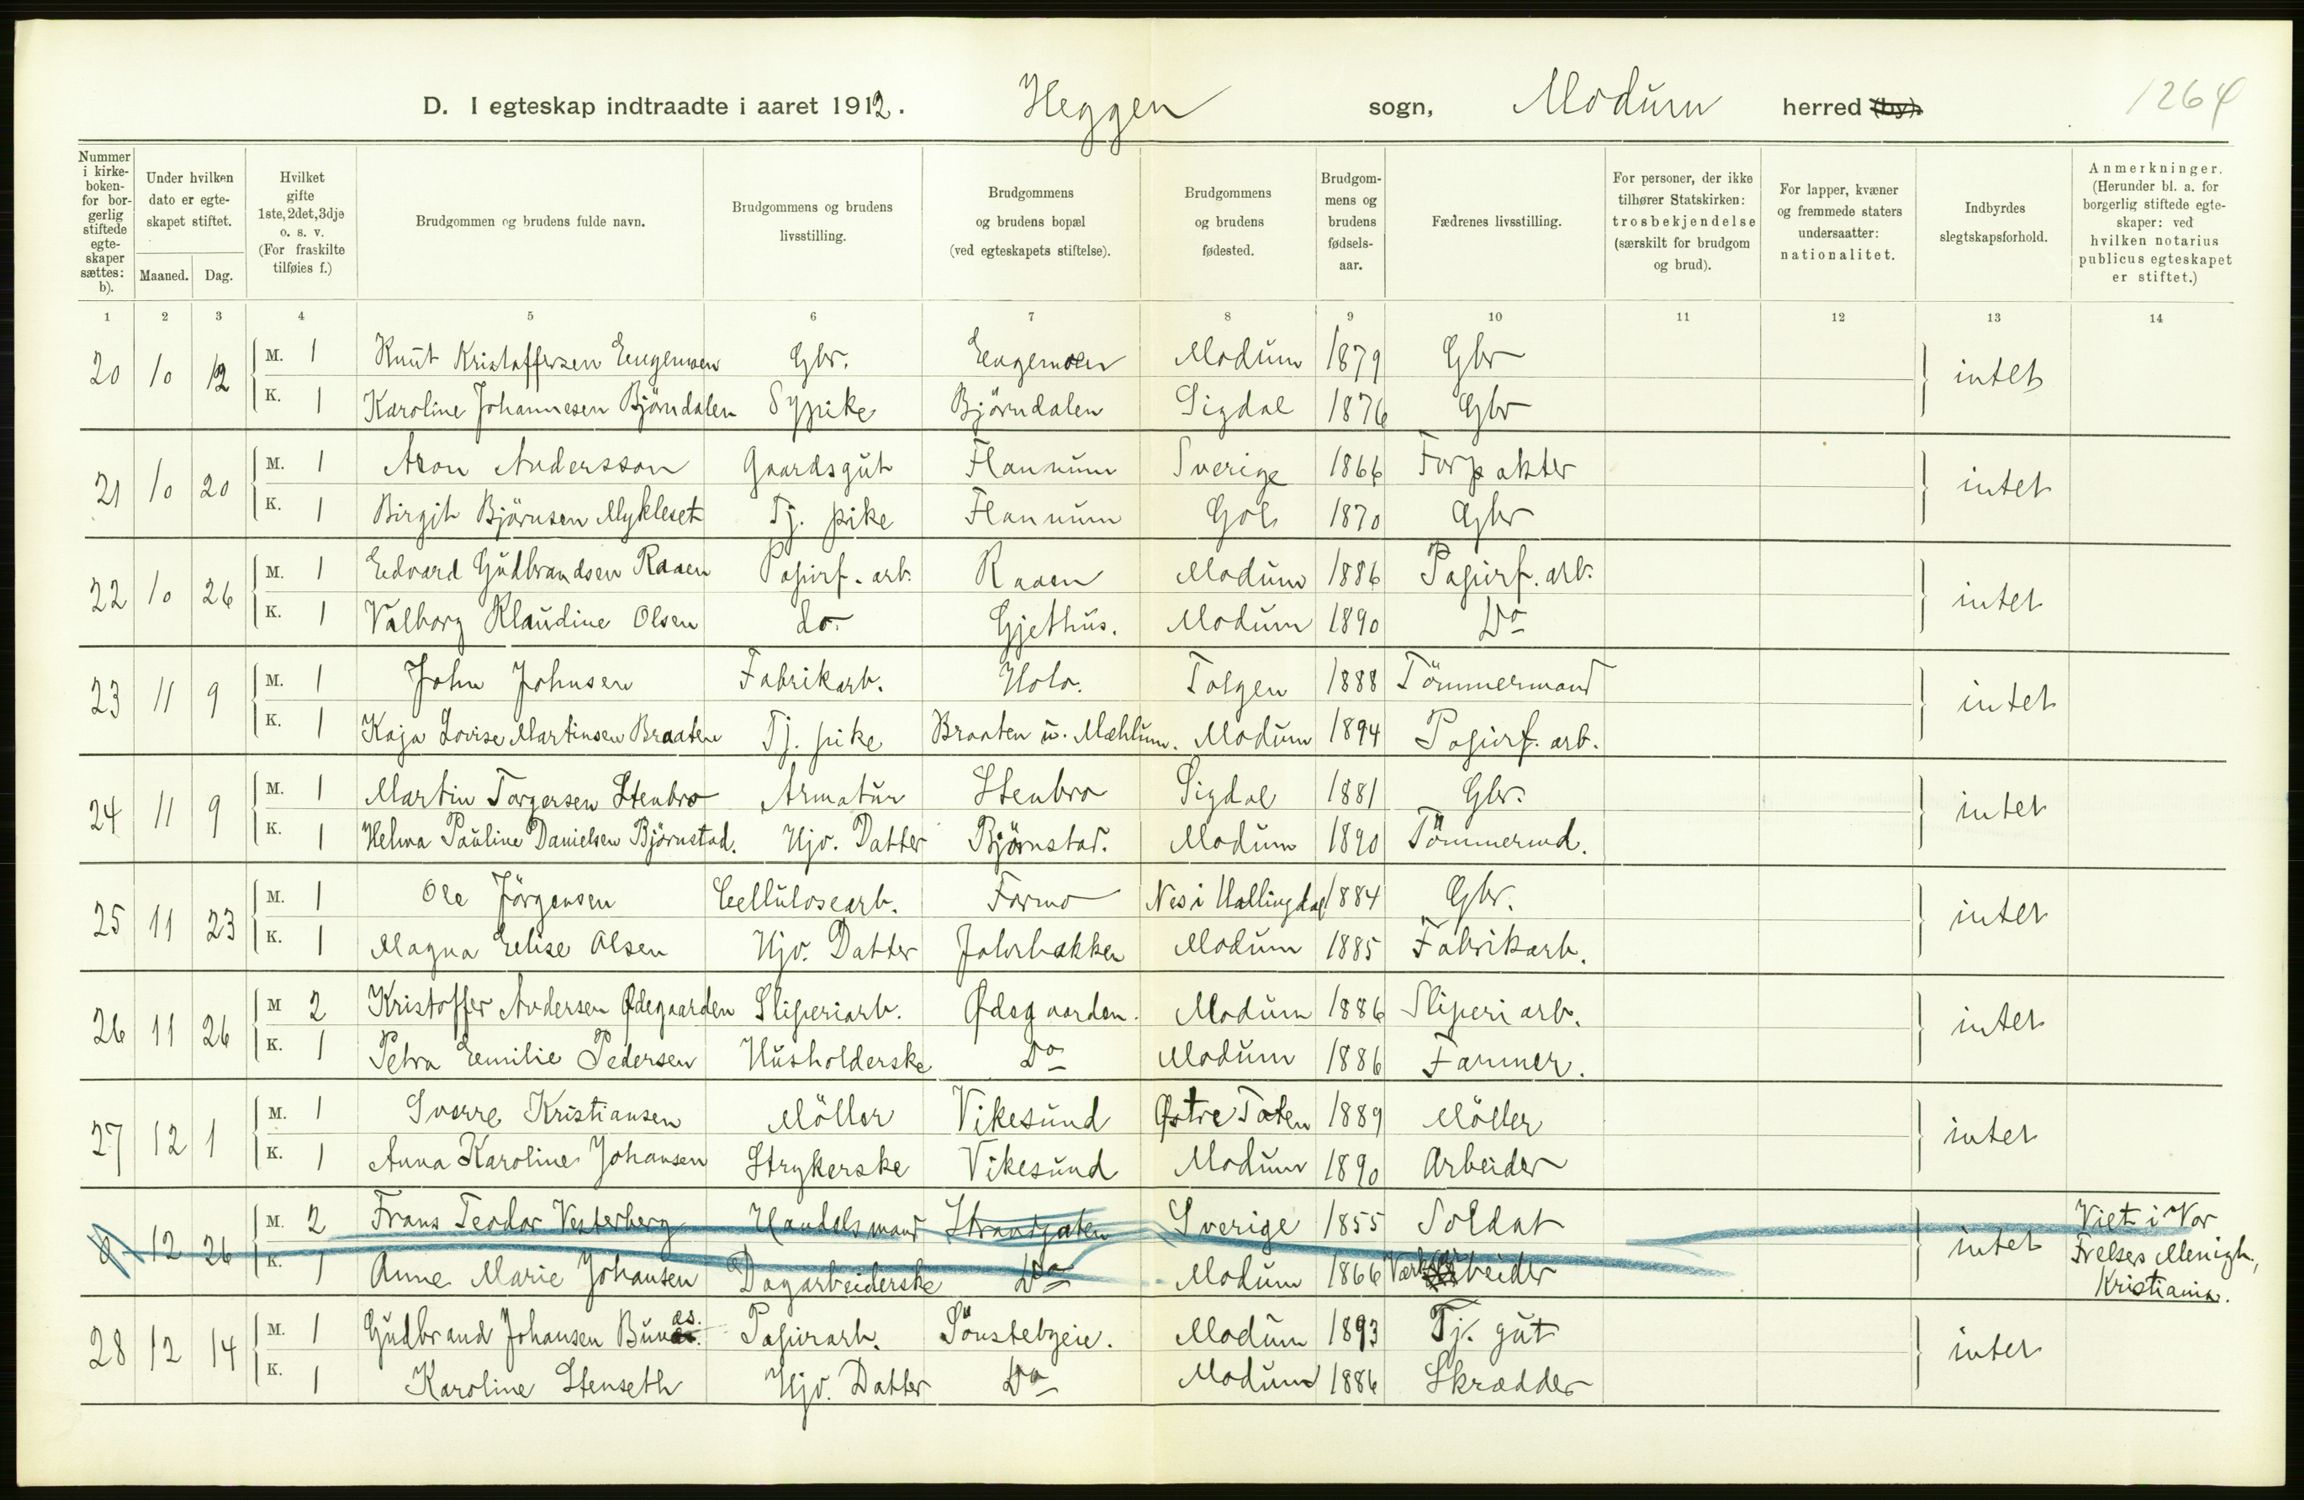 D. I egteskap indtraadte i aaret 1912. Heggen sogn, Modum herred (by). 1264
Nummer i kirkeboken- for borgerlig stiftede egteskaper sættes: b).
Under hvilken dato er egteskapet stiftet.
Maaned. Dag.
Hvilket gifte 1ste, 2det, 3dje o. s. v. (For fraskilte tilføies f.)
Brudgommen og brudens fulde navn.
Brudgommens og brudens livsstilling.
Brudgommens og brudens bopæl (ved egteskapets stiftelse).
Brudgommens og brudens fødested.
Brudgommens og brudens fødselsaar.
Fædrenes livsstilling.
For personer, der ikke tilhører Statskirken: trosbekjendelse (særskilt for brudgom og brud).
For lapper, kvæner og fremmede staters undersaatter: nationalitet.
Indbyrdes slegtskapsforhold.
Anmerkninger. (Herunder bl. a. for borgerlig stiftede egteskaper: ved hvilken notarius publicus egteskapet er stiftet.)
1 2 3 4 5 6 7 8 9 10 11 12 13 14
20 10 12 M. 1 Knut Kristoffersen Engemoen Gbr. Engemoen Modum 1879 Gbr intet
K. 1 Karoline Johannesen Björndalen Sypike Björndalen Sigdal 1876 Gbr
21 10 20 M. 1 Aron Andersson Gaardsgut Flannum Sverige 1866 Forpakter intet
K. 1 Birgit Björnsen Mykleset Tj. pike Flannum Gol 1870 Gbr
22 10 26 M. 1 Edvard Gudbrandsen Raaen Papirf. arb. Raaen Modum 1886 Papirf. arb. intet
K. 1 Valborg Klaudine Olsen do. Gjethus. Modum 1890 Do
23 11 9 M. 1 John Johnsen Fabrikarb. Holo. Tolgen 1888 Tömmermand intet
K. 1 Kaja Lovise Martinsen Braaten Tj. pike Braaten u. Mæhlum. Modum 1894 Papirf. arb.
24 11 9 M. 1 Martin Torgersen Stenbro Armatur Stenbro Sigdal 1881 Gbr. intet
K. 1 Helma Pauline Danielsen Björnstad. Hjv. Datter Björnstad. Modum 1890 Tömmermd.
25 11 23 M. 1 Ole Jörgensen Cellulosearb. Formo Nes i Hallingdal 1884 Gbr. intet
K. 1 Magna Elise Olsen Hjv. Datter Jahrbakken Modum 1885 Fabrikarb.
26 11 26 M 2 Kristoffer Andersen Ødegaarden Sliperiarb. Ødegaarden. Modum 1886 Sliperiarb. intet
K. 1 Petra Emilie Pedersen Husholderske Do Modum 1886 Farmer.
27 12 1 M. 1 Sverre Kristiansen Möller Vikesund Østre Toten 1889 Möller intet
K. 1 Anna Karoline Johansen Strykerske Vikesund Modum 1890 Arbeider
12 26 M. 2 Frans Teodor Vesterberg Handelsmand Strandgaten Sverige 1855 Soldat intet Viet i Vor
K. 1 Anne Marie Johansen Dagarbeiderske Do Modum 1866 beider Frelses Menigh.,
Kristiania.
28 12 14 M. 1 Gudbrand Johansen Bunæs. Papirarb. Sönstebyeie. Modum 1893 Tj. gut intet
K. 1 Karoline Stenseth Hjv. Datter Do Modum 1886 Skrædder